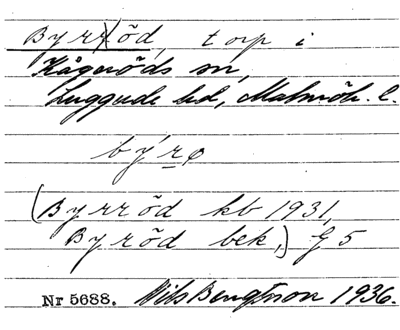 Byrröd, torp i
Kågeröds sn,
Luggude hd, Malmöh. l.
bý̀rø
(Byrröd kb 1931,
Byröd bek,) G 5
Nr 5688. Nils Bengtson 1936.